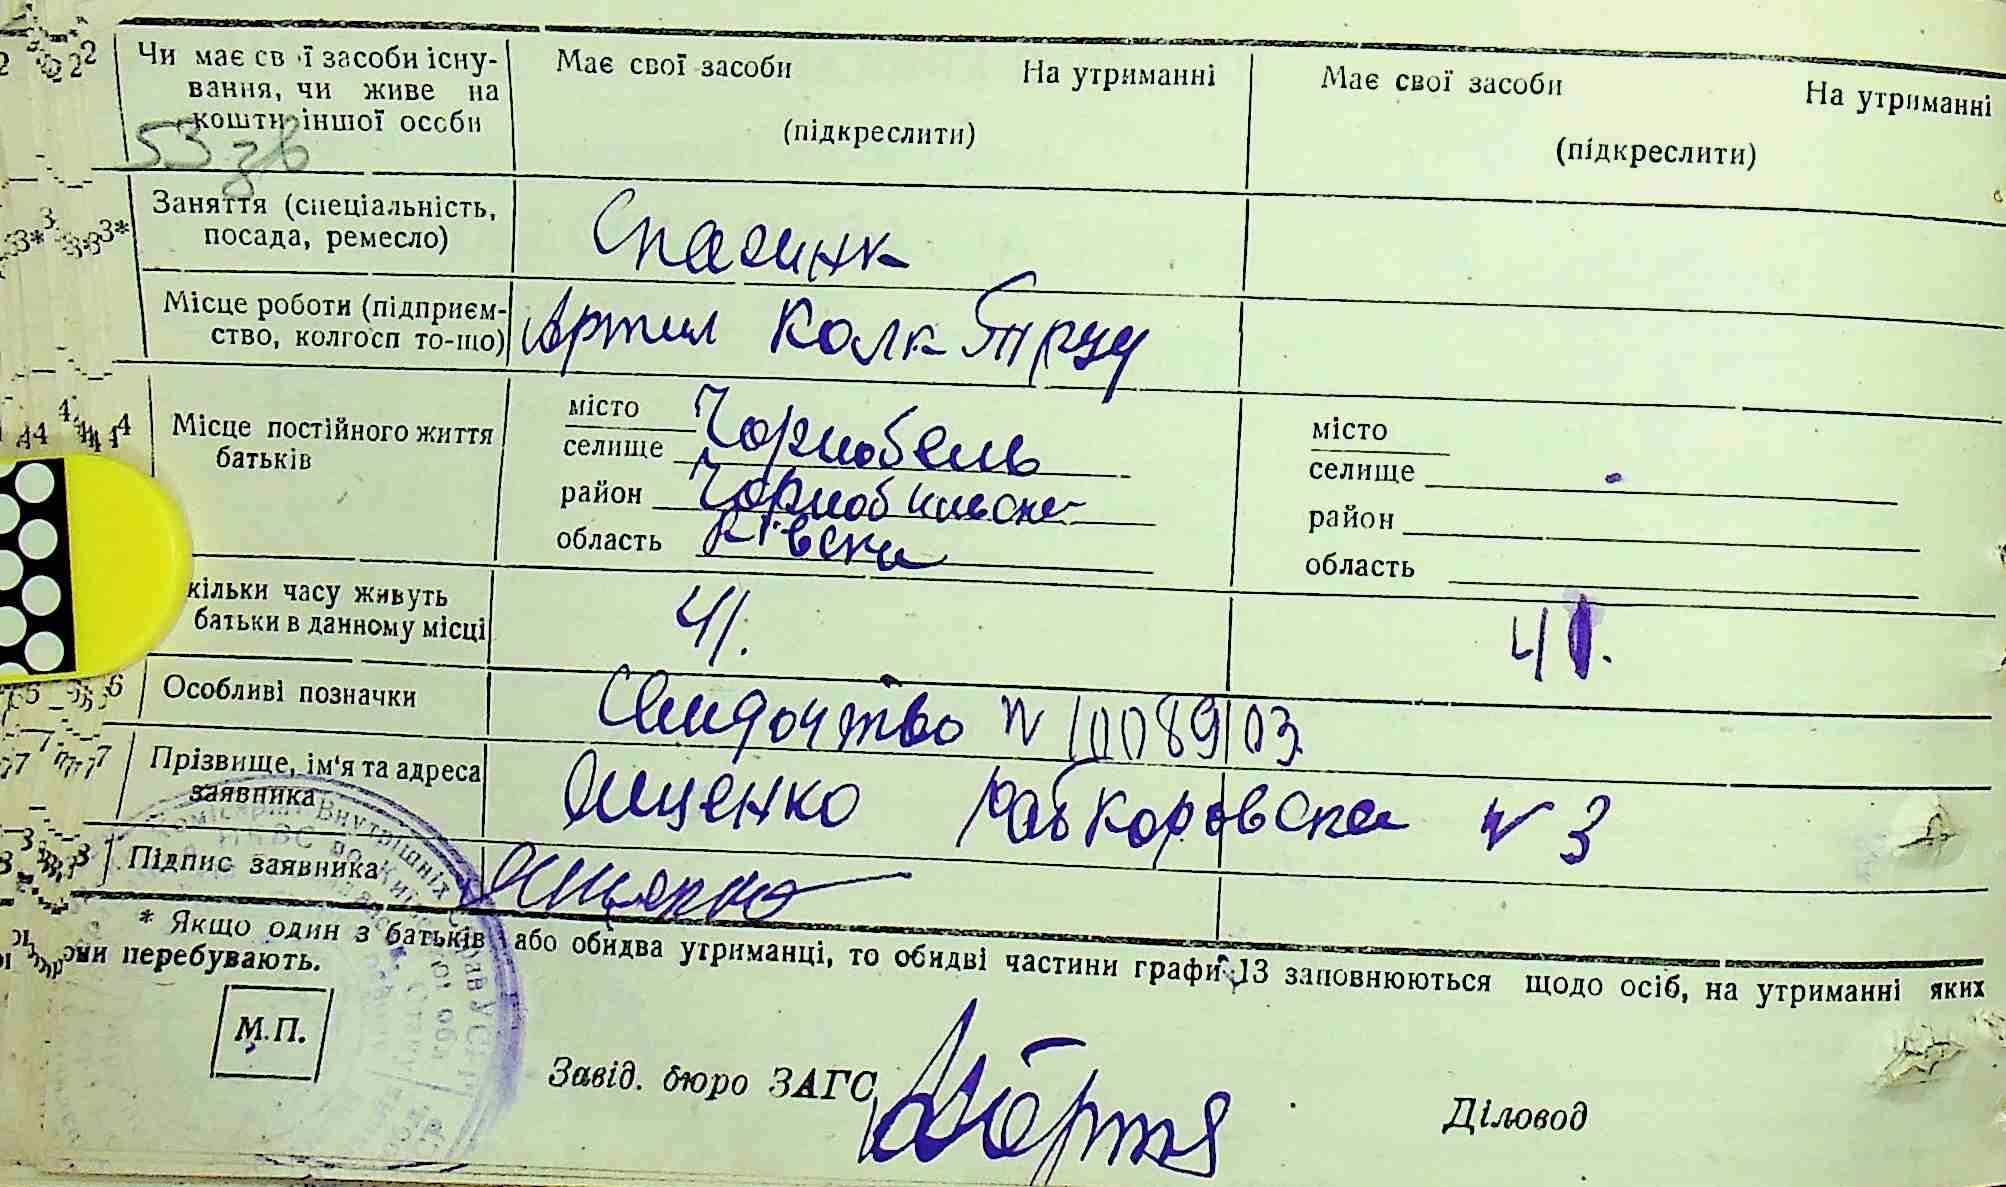 Чи має св ї засоби існу-
вання, чи живе на
кошти іншої особи
Має свої засоби На утриманні
(підкреслити)
Має свої засоби На утриманні
(підкреслити)
53
Заняття (спеціальність,
посада, ремесло)
Місце роботи (підприєм-
ство, колгосп то-що)
Артил Колк Трцу
Місце постійного життя
батьків
місто
селище Чорнобель
район
область Київска
місто
селище
район
область
кільки часу живуть
батьки в данному місці
41.
41.
Особливі позначки
Свидочтво N 1008903
Прізвище, ім'я та адреса
заявника
Ященко Рабкоровска N 3
Підпис заявника
Ященко
* Якщо один з батьків або обидва утриманці, то обидві частини графи 13 заповнюються щодо осіб, на утриманні яких
они перебувають.
М.П.
Завід. бюро ЗАГС
Діловод